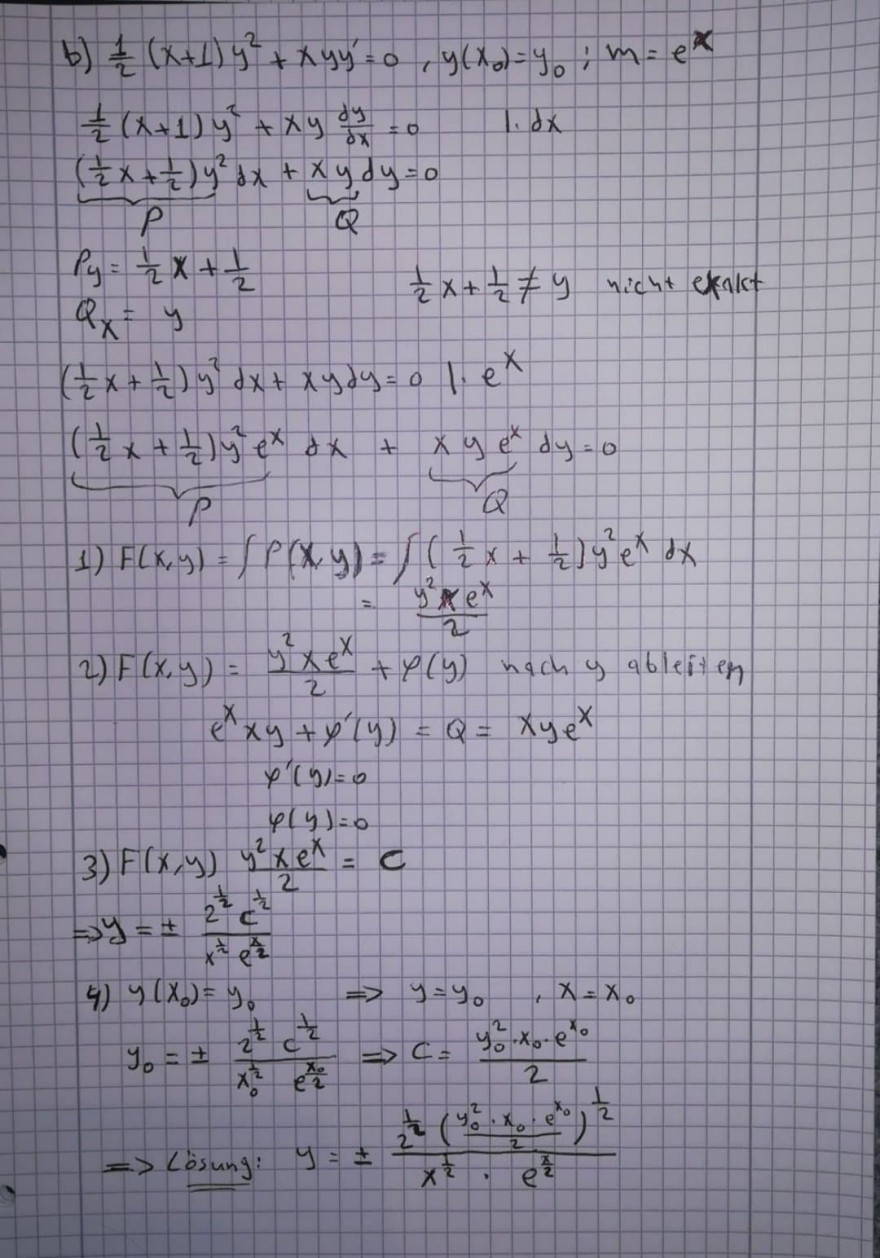 b) 1/2 (x+1) y² + x y y' = 0 , y(x₀) = y₀ ; m = e^x
1/2 (x+1) y² + x y dy/dx = 0 |· dx
(1/2 x + 1/2) y² dx + x y dy = 0
P Q
Py = 1/2 x + 1/2
1/2 x + 1/2 ≠ y nicht exakt
Qx = y
(1/2 x + 1/2) y² dx + x y dy = 0 |· e^x
(1/2 x + 1/2) y² e^x dx + x y e^x dy = 0
P Q
1) F(x,y) = ∫ P(x,y) = ∫ (1/2 x + 1/2) y² e^x dx
= y² x e^x / 2
2) F(x,y) = y² x e^x / 2 + φ(y) nach y ableiten
e^x x y + φ'(y) = Q = x y e^x
φ'(y) = 0
φ(y) = 0
3) F(x,y) y² x e^x / 2 = C
=> y = ± 2^(1/2) c^(1/2) / (x^(1/2) e^(x/2))
4) y(x₀) = y₀ => y = y₀ , x = x₀
y₀ = ± 2^(1/2) c^(1/2) / (x₀^(1/2) e^(x₀/2)) => C = y₀² · x₀ · e^(x₀) / 2
=> Lösung: y = ± 2^(1/2) (y₀² · x₀ · e^(x₀) / 2)^(1/2) / (x^(1/2) · e^(x/2))